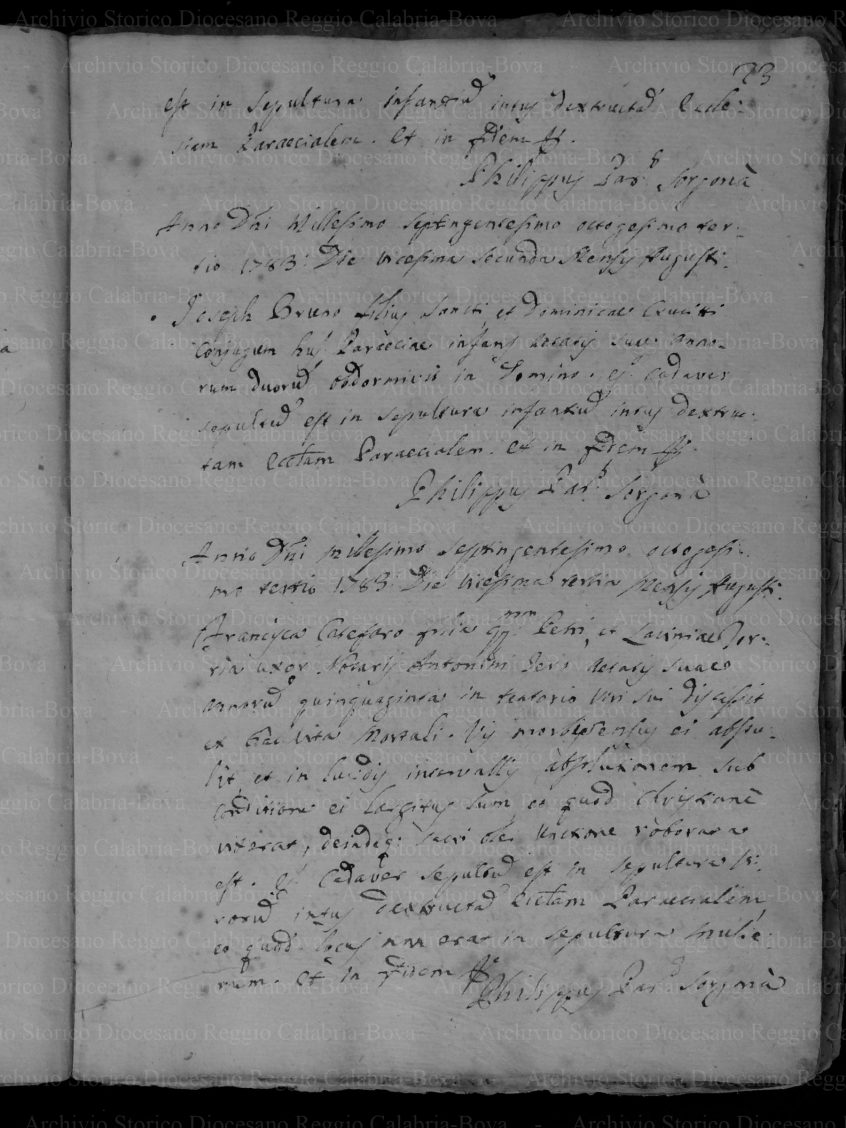 73
est in sepultura infantiũ intus dextructã Eccle:
siam Paraecialem. Et in fidem &.
Philippus Par.s Sorgonà
Anno Dñi Millesimo septingentesimo octogesimo ter:
tio 1783: Die vicesima secunda Mensis Augusti.
Joseph Bruno filius Sancti et Dominicae Cruciti
Conjugum huj. Paraeciae infans aetatis suae anno-
rum duorũ obdormivit in Domino. ej. Cadaver
sepultũ est in sepultura infantiũ intus dextruc.
tam Ecclãm Paraecialem. Et in fidem &.
Philippus Par.s Sorgonà
Anno Dñi Millesimo septingentesimo octogesi:
mo tertio 1783: Die vicesima tertia Mensis Augusti.
Francisca Catefaro filia qqm. Petri, et Laviniae
ria uxor Notarij Antonini aetatis suae
annorũ quinquaginta in viri sui discessit
ex hac vita mortali. Vis morbi sensus ei abstu-
lit et in lucidis intervallis absolutionem sub
conditione ei largitus sum eo quod christianè
vixerat, deindeq: sacri olei unctione roborata
est. ej. Cadaver sepultũ est in sepultura vi:
rorũ intus dextructã Ecclãm Paraecialem
eo quod locus non erat in sepultura mulie:
rum. Et in fidem &.
Philippus Par.s Sorgonà
Archivio Storico Diocesano Reggio Calabria-Bova